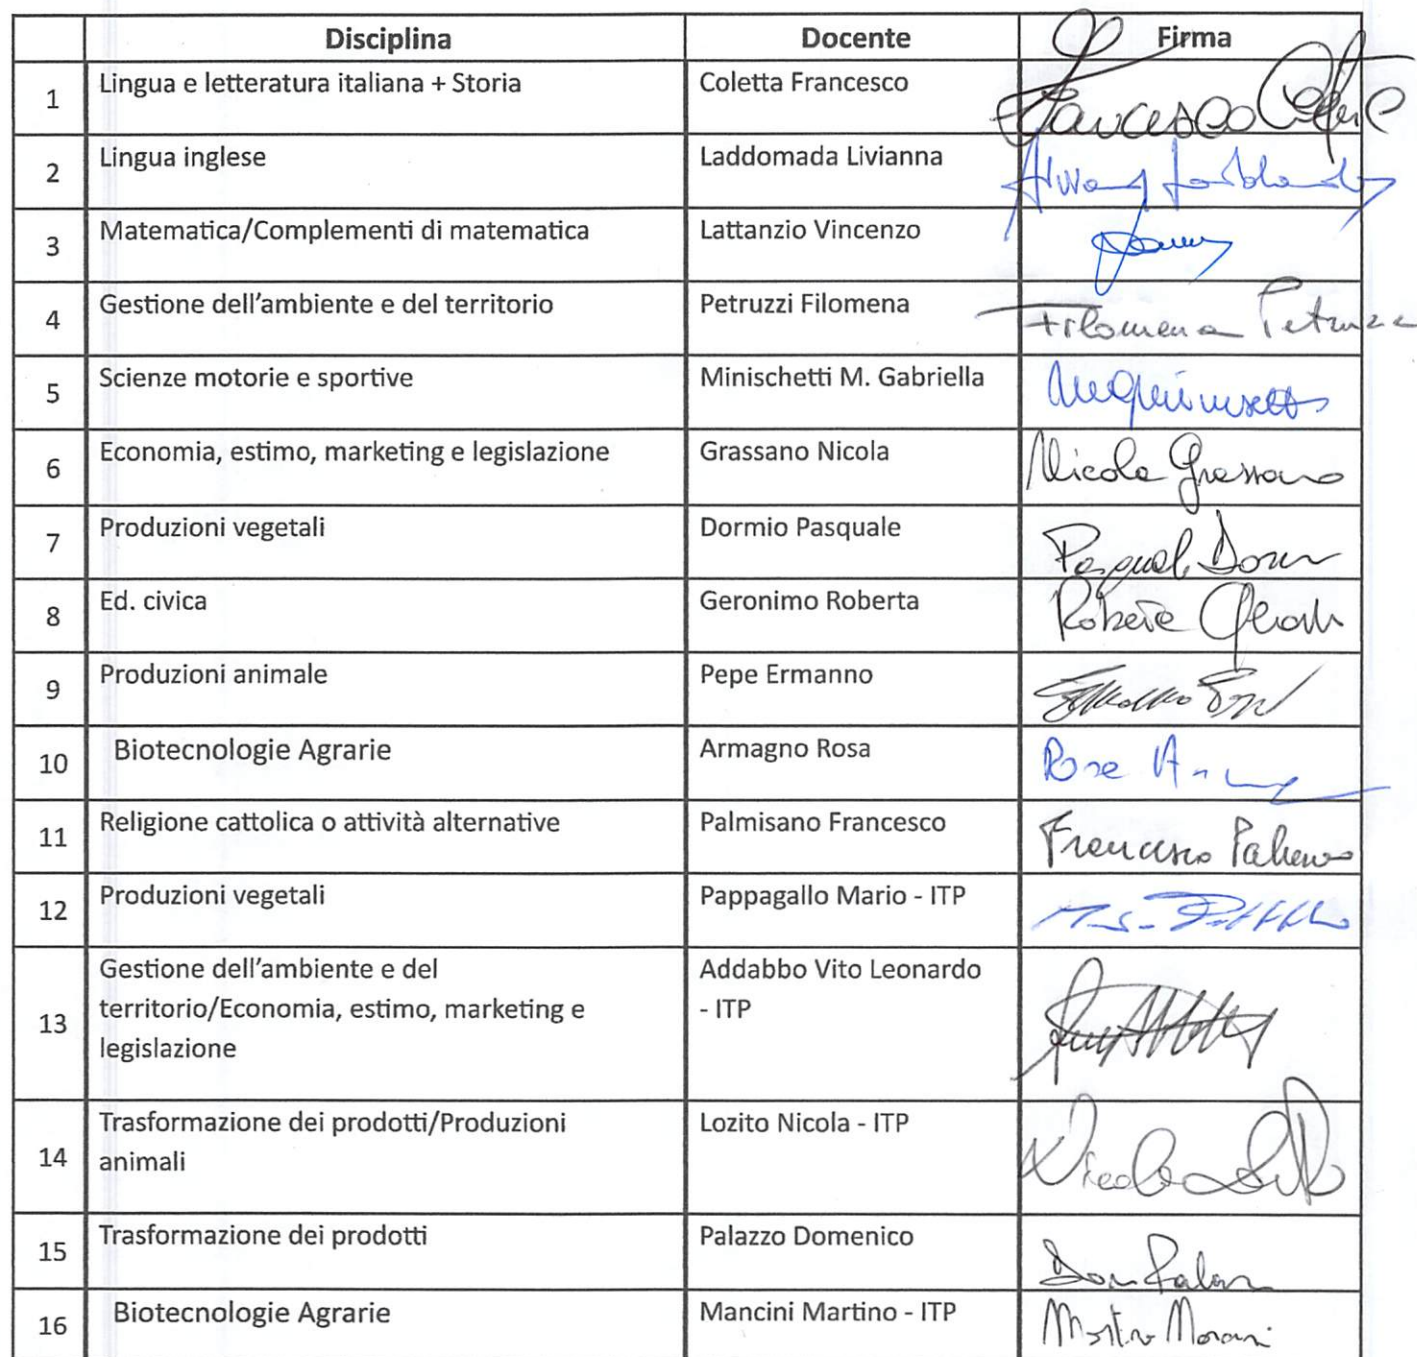 Disciplina Docente Firma
1 Lingua e letteratura italiana + Storia Coletta Francesco Francesco
2 Lingua inglese Laddomada Livianna
3 Matematica/Complementi di matematica Lattanzio Vincenzo
4 Gestione dell’ambiente e del territorio Petruzzi Filomena Filomena
5 Scienze motorie e sportive Minischetti M. Gabriella
6 Economia, estimo, marketing e legislazione Grassano Nicola Nicola Grassano
7 Produzioni vegetali Dormio Pasquale
8 Ed. civica Geronimo Roberta
9 Produzioni animale Pepe Ermanno
10 Biotecnologie Agrarie Armagno Rosa
11 Religione cattolica o attività alternative Palmisano Francesco Francesco
12 Produzioni vegetali Pappagallo Mario - ITP
Gestione dell’ambiente e del Addabbo Vito Leonardo
13 territorio/Economia, estimo, marketing e - ITP
legislazione
14 Trasformazione dei prodotti/Produzioni Lozito Nicola - ITP Nicola
animali
15 Trasformazione dei prodotti Palazzo Domenico
16 Biotecnologie Agrarie Mancini Martino - ITP